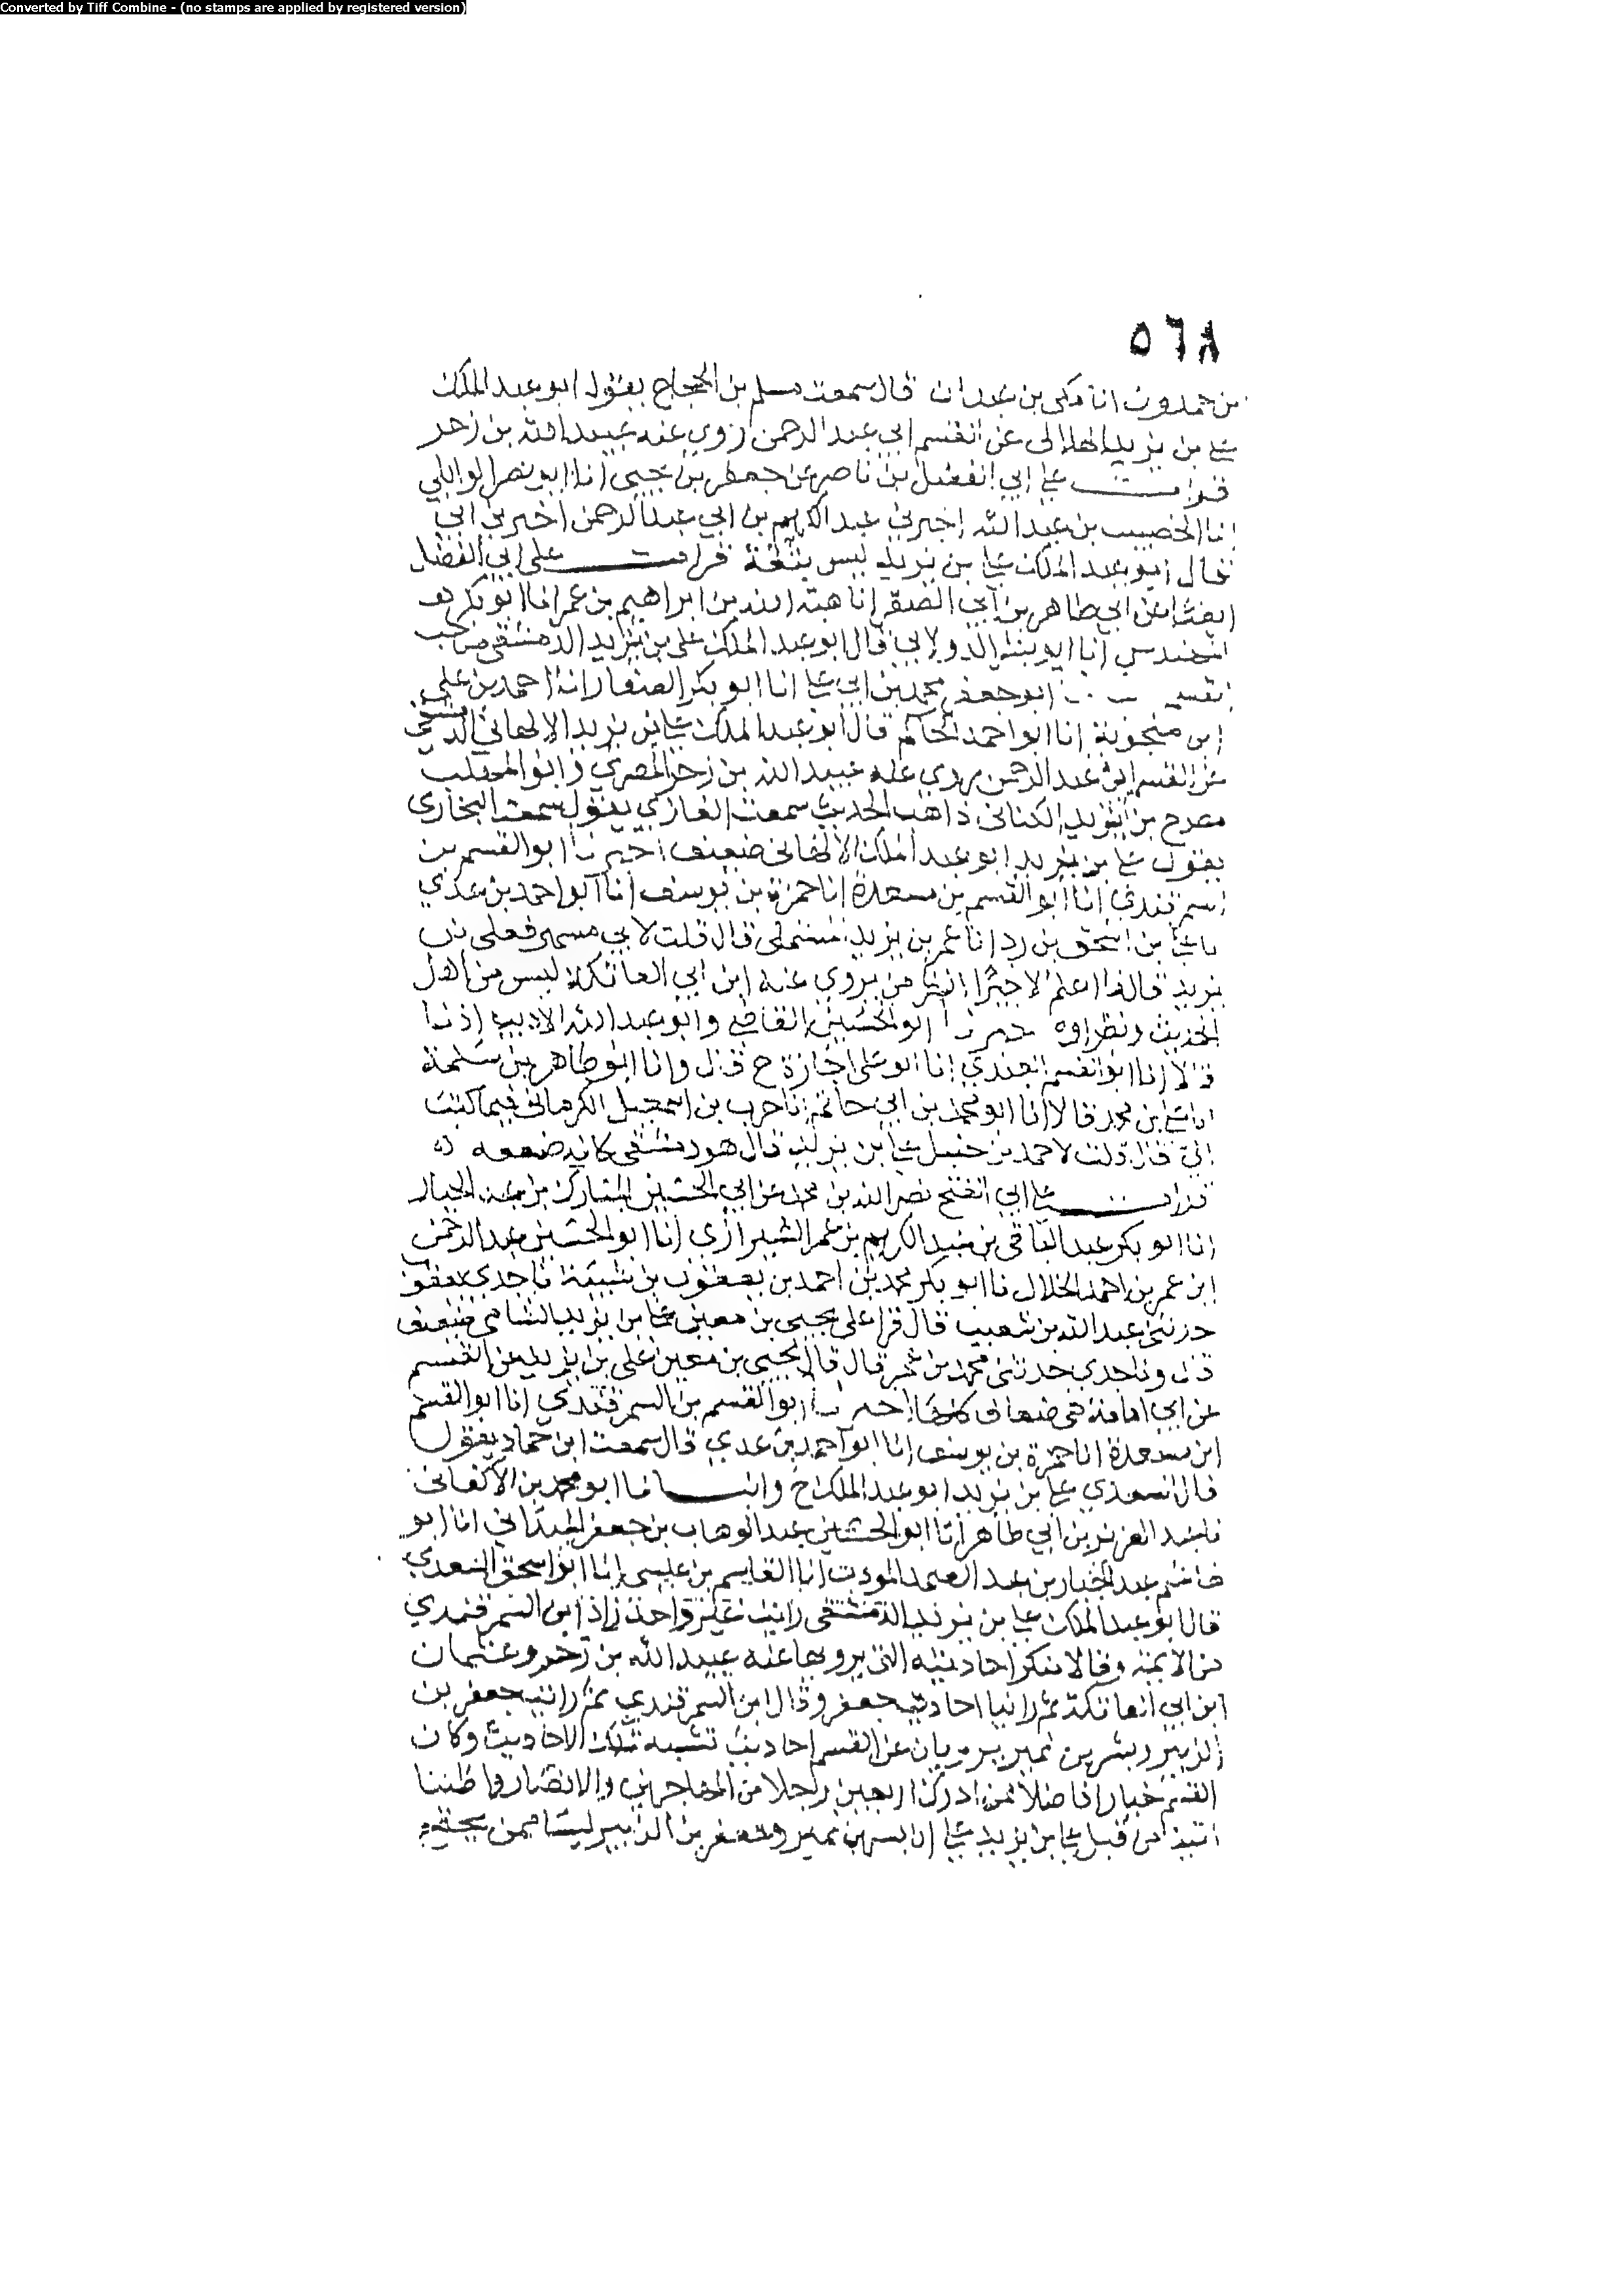 Converted by Tiff Combine - (no stamps are applied by registered version)
٥٦٨
بن حمدون انا مكى بن عبدان قال سمعت مسلم بن الحجاج يقول ابو عبد الملك
على بن يزيد الهلالى عن القسم ابي عبد الرحمن روى عنه عبيد الله بن زحر
قرات على ابي الفضل بن ناصر عن جعفر بن يحيى انا ابو نصر الوايلي
انا الخصيب بن عبد الله اخبرني عبد الكريم بن ابي عبد الرحمن اخبرني ابي
قال ابو عبد الملك على بن يزيد ليس بثقة قرات على ابي الفضل
ايضا عن ابي طاهر بن ابي الصقر انا هبة الله بن ابراهيم بن عمر انا ابو بكر
المهندس انا ابو بشر الدولابي قال ابو عبد الملك على بن يزيد الدمشقى صاحب
القسم ابو جعفر محمد بن ابي على انا ابو بكر الصفار انا احمد بن على
ابن منجويه انا ابو احمد الحاكم قال ابو عبد الملك على بن يزيد الالهاني الدمشقي
عن القسم ابي عبد الرحمن يروى عنه عبيد الله بن زحر المصري وابو المهلب
مطرح بن يزيد الكنانى ذاهب الحديث سمعت الغازي يقول سمعت البخارى
يقول على بن يزيد ابو عبد الملك الالهانى ضعيف اخبرنا ابو القسم بن
السمرقندي انا ابو القسم بن مسعدة انا حمزة بن يوسف انا ابو احمد بن عدي
بن اسحق بن انا عمر بن يزيد قال قلت لابي مسهر فعلى بن
يزيد قال ما اعلم الا خيرا انظر من يروى عنه ابن ابي العاتكة ليس من اهل
الحديث ونظراوه اخبرنا ابو الحسين القاضي وابو عبد الله الاديب اذنا
قالا انا ابو القسم العبدي انا ابو على اجازة ح قال وانا ابو طاهر بن سلمة
انا على بن محمد قالا انا ابو محمد بن ابي حاتم انا حرب بن اسمعيل الكرمانى فيما كتب
الي قال قلت لاحمد بن حنبل على بن يزيد قال هو دمشقى كانه ضعفه
قرات على ابي الفتح نصر الله بن محمد عن ابي الحسين المبارك بن عبد الجبار
انا ابو بكر عبد الباقى بن عبد الكريم بن عمر الشيرازي انا ابو الحسين عبد الرحمن
ابن عمر بن احمد الخلال نا ابو بكر محمد بن احمد بن يعقوب بن شيبة نا جدي يعقوب
حدثنى عبد الله بن شعيب قال قرا على يحيى بن معين على بن يزيد الشامى ضعيف
قال ونا جدي حدثنى محمد بن عمر قال قال يحيى بن معين على بن يزيد عن القسم
عن ابي امامة هى ضعاف كلها اخبرنا ابو القسم بن السمرقندي انا ابو القسم
ابن مسعدة انا حمزة بن يوسف انا ابو احمد بن عدي قال سمعت ابن حماد يقول
قال السعدي على بن يزيد ابو عبد الملك ح وانبانا ابو محمد بن الاكفانى
نا عبد العزيز بن ابي طاهر انا ابو الحسين عبد الوهاب بن جعفر الميداني انا ابو
هاشم عبد الجبار بن عبد الصمد المودب انا القاسم بن عيسى انا ابو اسحق السعدي
قال ابو عبد الملك على بن يزيد الدمشقى رايت غير واحد زاد ابن السمرقندي
من الايمة وقالا ينكر احاديثه التى يرويها عنه عبيد الله بن زحر وعثمان
ابن ابي العاتكة ثم راينا احاديث جعفر وقال ابن السمرقندي ثم رايت جعفر بن
الزبير وبشر بن نمير يرويان عن القسم احاديث تشبه تلك الاحاديث وكان
القسم خيارا فاضلا ممن ادرك اربعين رجلا من المهاجرين والانصار واظننا
اتينا من قبل على بن يزيد على ان بشر بن نمير وجعفر بن الزبير ليسا ممن يحتج